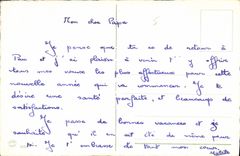 Mon cher Papa
Je pense que tu es de retour à
Pau et j'ai plaisir à venir t'y offrir
tous mes vœux les plus affectueux pour cette
nouvelle année qui va commencer. Je te
désire une santé parfaite et beaucoup de
satisfactions.
Je passe de bonnes vacances et je
souhaite qu'il en ait été de même pour
toi. Je t'embrasse de tout mon cœur.